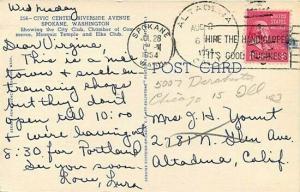 Wednesday
256—CIVIC CENTER, RIVERSIDE AVENUE
SPOKANE, WASHINGTON
Showing the City Club, Chamber of Commerce, Masonic Temple and Elks Club.
SPOKANE
JUL 28
1954
ALTADENA
AUG
HIRE THE HANDICAPPED
IT'S GOOD BUSINESS
POST CARD
Dear Virginia
This is a swell
town & such en
trancing shops
but they don't
open till 10:00
& we're leaving at
8:30 for Portland
See you soon
Love, Lura
5007
Chicago 15 Ill
Mrs. J. H. Yount
2781 N. Glen Ave
Altadena, Calif.